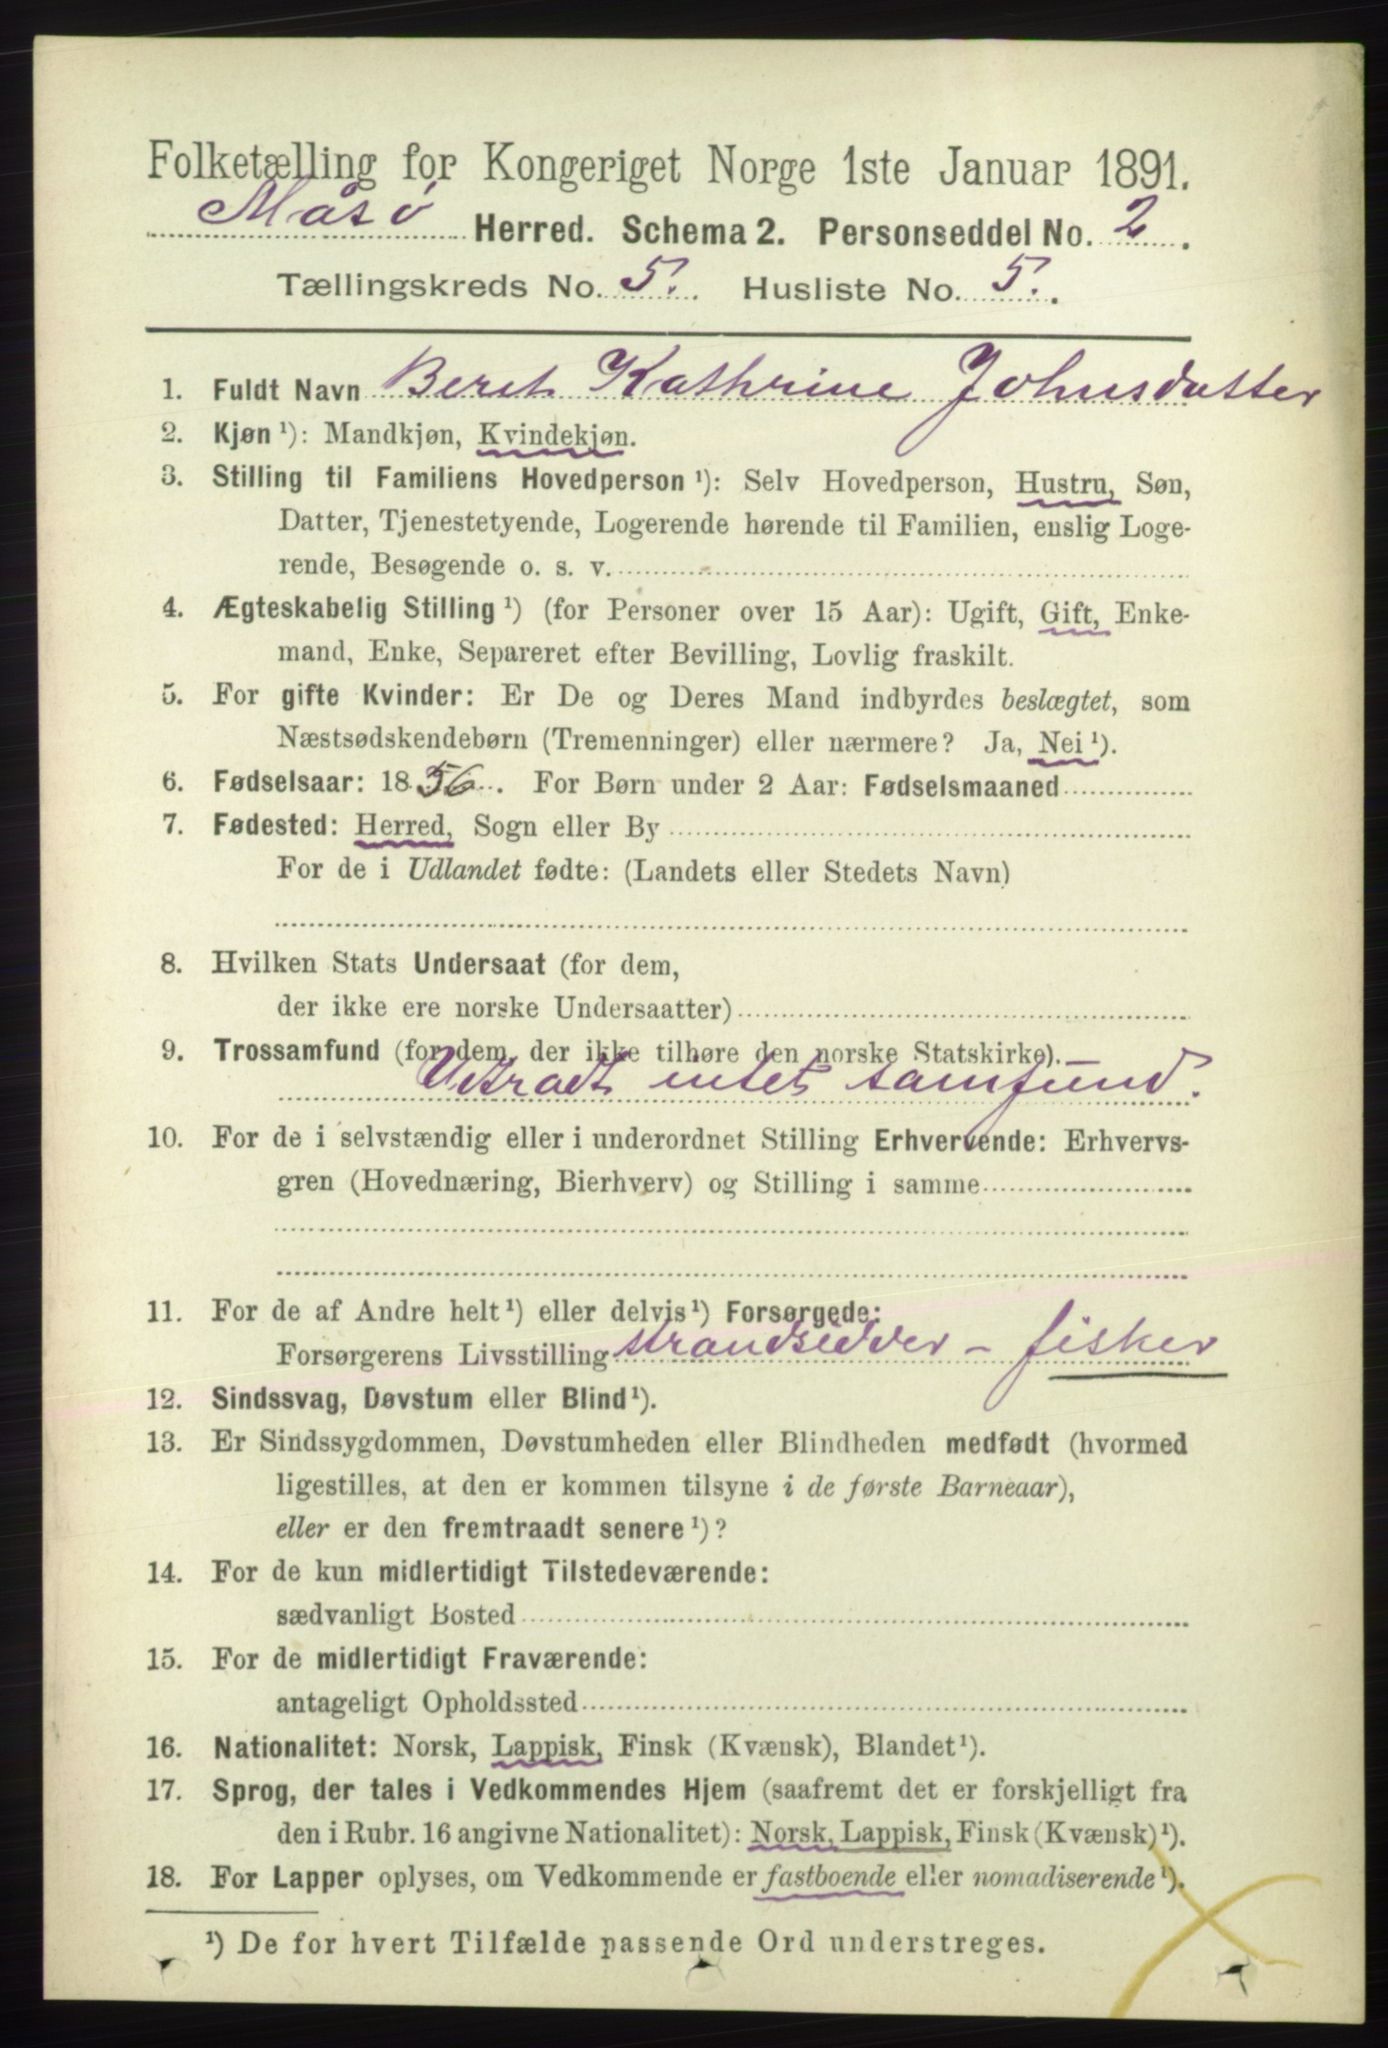 Folketælling for Kongeriget Norge 1ste Januar 1891.
Måsø Herred. Schema 2. Personseddel No. 2.
Tællingskreds No. 5. Husliste No. 5.
1. Fuldt Navn Beret Kathrine Johnsdatter
2. Kjøn ¹): Mandkjøn, Kvindekjøn.
3. Stilling til Familiens Hovedperson ¹): Selv Hovedperson, Hustru, Søn,
Datter, Tjenestetyende, Logerende hørende til Familien, enslig Loge-
rende, Besøgende o. s. v.
4. Ægteskabelig Stilling ¹) (for Personer over 15 Aar): Ugift, Gift, Enke-
mand, Enke, Separeret efter Bevilling, Lovlig fraskilt.
5. For gifte Kvinder: Er De og Deres Mand indbyrdes beslægtet, som
Næstsødskendebørn (Tremenninger) eller nærmere? Ja, Nei ¹).
6. Fødselsaar: 1856. For Børn under 2 Aar: Fødselsmaaned
7. Fødested: Herred, Sogn eller By
For de i Udlandet fødte: (Landets eller Stedets Navn)
8. Hvilken Stats Undersaat (for dem,
der ikke ere norske Undersaatter)
9. Trossamfund (for dem, der ikke tilhøre den norske Statskirke).
Udtradt intet samfund.
10. For de i selvstændig eller i underordnet Stilling Erhvervende: Erhvervs-
gren (Hovednæring, Bierhverv) og Stilling i samme
11. For de af Andre helt ¹) eller delvis ¹) Forsørgede:
Forsørgerens Livsstilling strandsidder - fisker
12. Sindssvag, Døvstum eller Blind ¹).
13. Er Sindssygdommen, Døvstumheden eller Blindheden medfødt (hvormed
ligestilles, at den er kommen tilsyne i de første Barneaar),
eller er den fremtraadt senere ¹)?
14. For de kun midlertidigt Tilstedeværende:
sædvanligt Bosted
15. For de midlertidigt Fraværende:
antageligt Opholdssted
16. Nationalitet: Norsk, Lappisk, Finsk (Kvænsk), Blandet ¹).
17. Sprog, der tales i Vedkommendes Hjem (saafremt det er forskjelligt fra
den i Rubr. 16 angivne Nationalitet): Norsk, Lappisk, Finsk (Kvænsk) ¹).
18. For Lapper oplyses, om Vedkommende er fastboende eller nomadiserende ¹).
¹) De for hvert Tilfælde passende Ord understreges.